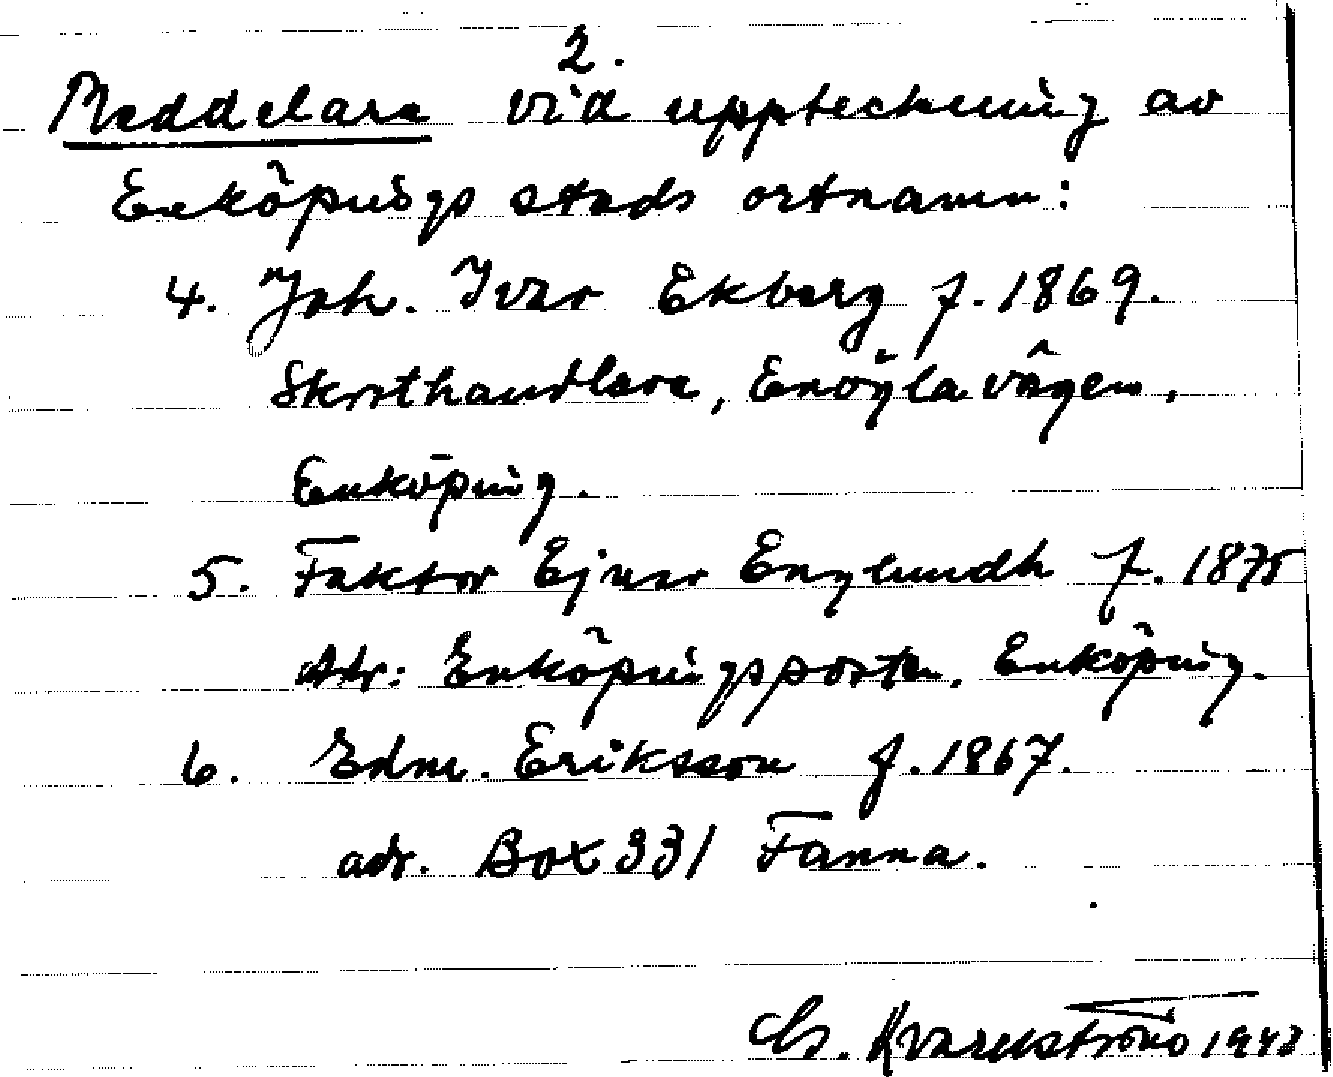 2.
Meddelare vid uppteckning av
Enköpings stads ortnamn:
4. Joh. Ivar Ekberg f. 1869.
Skrothandlare, Enögla vägen,
Enköping.
5. Faktor Ejnar Englundh f. 1875
Adr: Enköpingsposten, Enköping.
6. Edm. Eriksson f. 1867.
adr. Box 331 Fanna.
Kvarnström